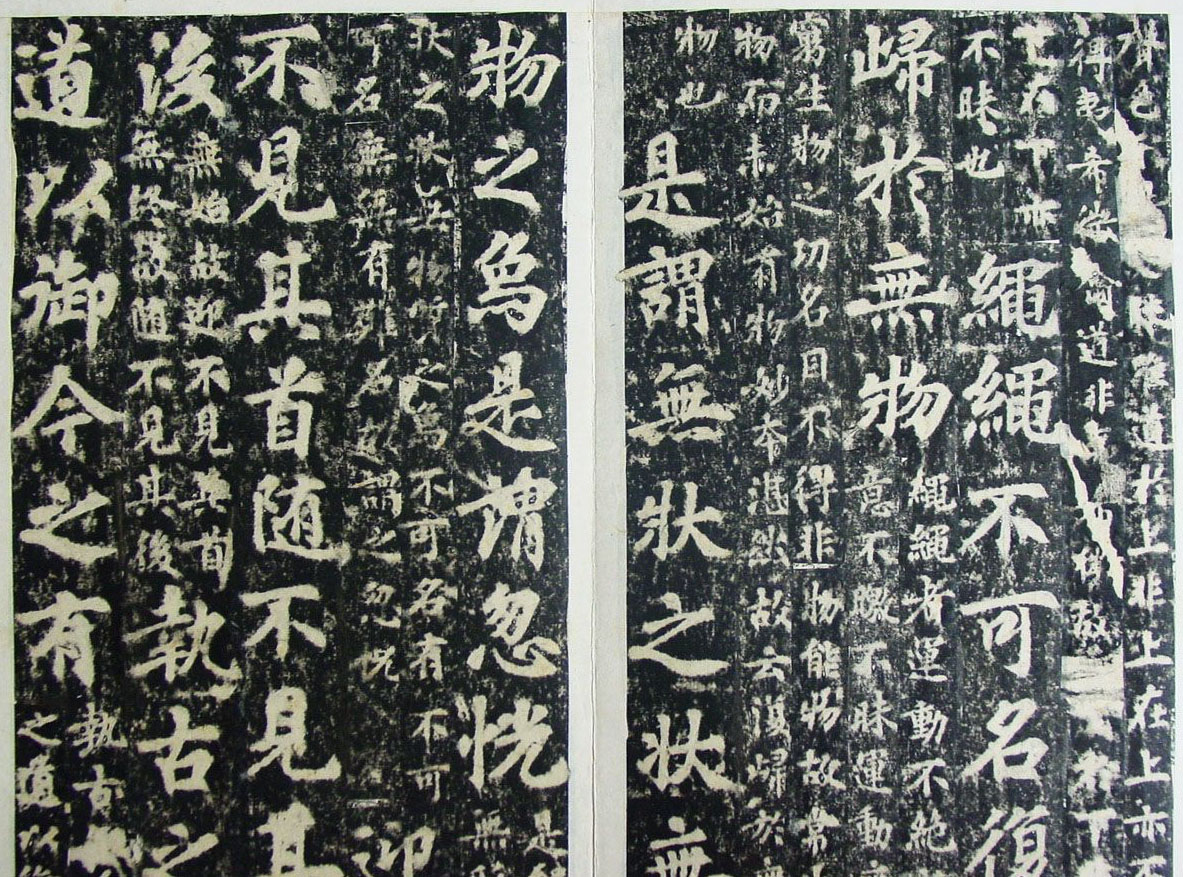 聲色
道於上非上在上亦不
得夷希
道非
下在下亦
不昧也
繩繩不可名復
歸於無物
繩繩者運動不絕
意不皦不昧運動
窮生物之功名目不得非物能物故常
物而未始有物妙本湛然故云復歸於無
物也
是謂無狀之狀無
物之象是謂忽恍
是
無
狀之狀無物質之象不可名有不可
可名無無有難名故謂之忽恍
迎
不見其首隨不見其
後
無始故迎不見其首
無終故隨不見其後
執古之
道以御今之有
執古
之道以